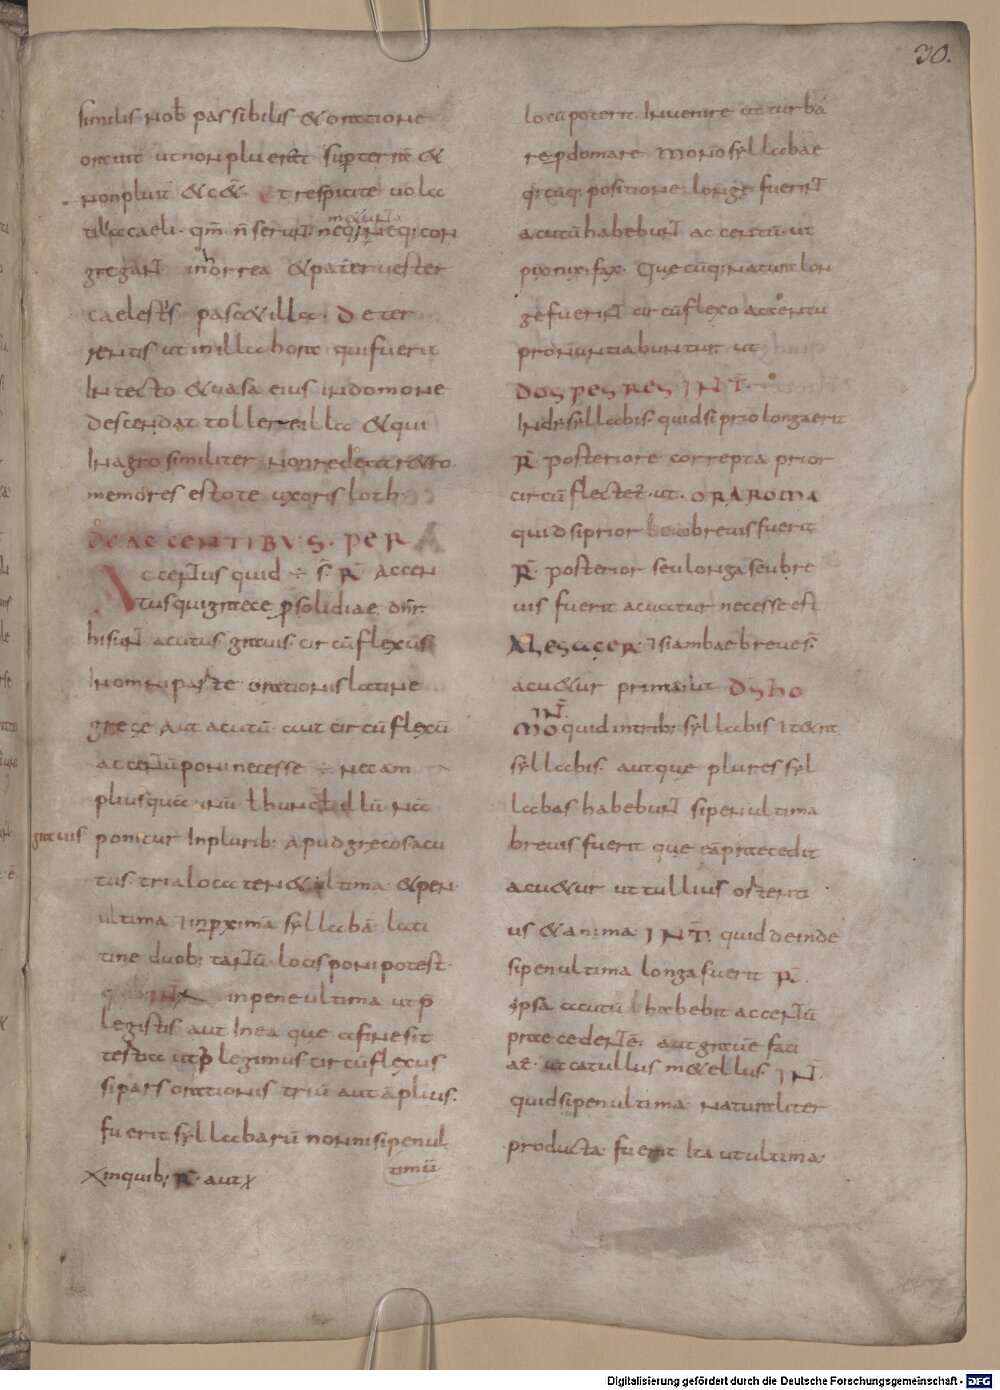 30.
similis nob̄ passibilis & oratione
orauit ut non plueret sup terrā &
non pluit
& respicite uola
tilia caeli. qm̄ n̄ serunt. neq; metunt neq; con
gregant in horrea & pater uester
caelestis pascit illa. De ter
rentis ut in illa hora qui fuerit
In tecto & uasa eius in domo ne
descendat tollere illa & qui
In agro similiter non redeat retro
memores estote uxoris loth
De accentibus. per
Accentus quid ÷ s. R̄ Accen
tus qui graece psolidiae dn̄r.
hi sunt acutus grauis circūflexus
Nomni parte orationis latine
grece Aut acutū aut circūflexū
accentū poni necesse ÷ nec am
plius quā unū
grauis
ponitur In plurib; Apud grecos acu
tus tria loca tenet ultima & pen
ultima & in pxima syllaba lati
tine duob; tantū locis poni potest
in pene ultima ut p
legistis aut In ea que a fine sit
tertia ut plegimus circūflexus
si pars orationis triū aut āplius
fuerit syllabarū non nisi penul
timū
X in quib; R̄ aut X
locū poterit Inuenire ut turba
repdomare Monosyllabae
q; cūq; positione longe fuerint
acutū habebunt accentū ut
pix nix. fax. Que cūq; natura lon
ge fuerint circūflexo accentu
pronuntiabuntur ut
Dos pes res INT̄.
In dysyllabis quid si prio longa erit
R̄ posteriore correpta prior
circūflectet. ut. ORA ROMA
quid si prior breuis fuerit
R̄ posterior seu longa seu bre
uis fuerit acuatur necesse est
si ambae breues
acuetur prima ut D̄s ho
mo INT̄ quid in trib; syllabis
syllabis. aut que plures syl
labas habebunt si penultima
breuis fuerit que eā praecedit
acuetur ut tullius ostenti
us & anima INT̄. quid deinde
si penultima longa fuerit R̄.
ipsa acutū habebit accentū
praecedente, aut graue
ut catullus metellus INT̄.
quid si penultima naturaliter
producta fuerit Ita ut ultima
Digitalisierung gefördert durch die Deutsche Forschungsgemeinschaft - DFG